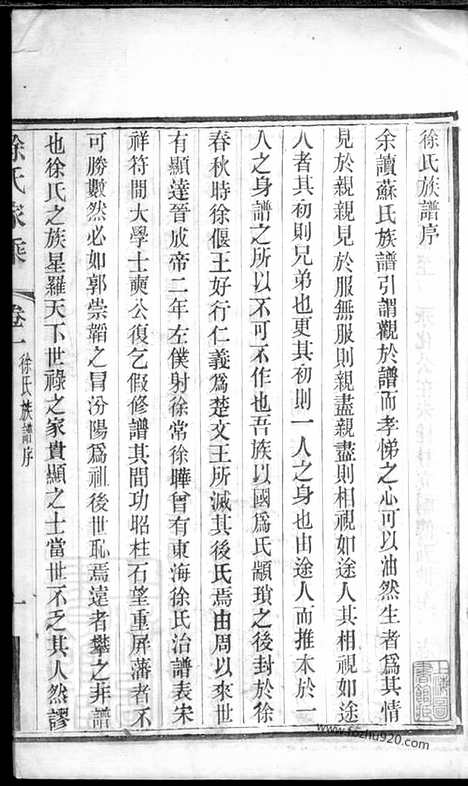 徐氏族譜序
余讀蘇氏族譜引謂觀於譜而孝悌之心可以油然生者爲其情
見於親親見於服無服則親盡親盡則相視如途人其相視如途
人者其初則兄弟也更其初則一人之身也由途人而推本於一
人之身譜之所以不可不作也吾族以國爲氏顓頊之後封於徐
春秋時徐偃王好行仁義爲楚文王所滅其後氏焉由周以來世
有顯達晉成帝二年左僕射徐常徐曄曾有東海徐氏治譜表宋
祥符間大學士奭公復乞假修譜其間功昭柱石望重屏藩者不
可勝數然必如郭崇韜之冒汾陽爲祖後世恥焉遠者攀之非譜
也徐氏之族星羅天下世祿之家貴顯之士當世不乏其人然謬
徐氏家乘
卷一
徐氏族譜序
一
www.fozhu920.com